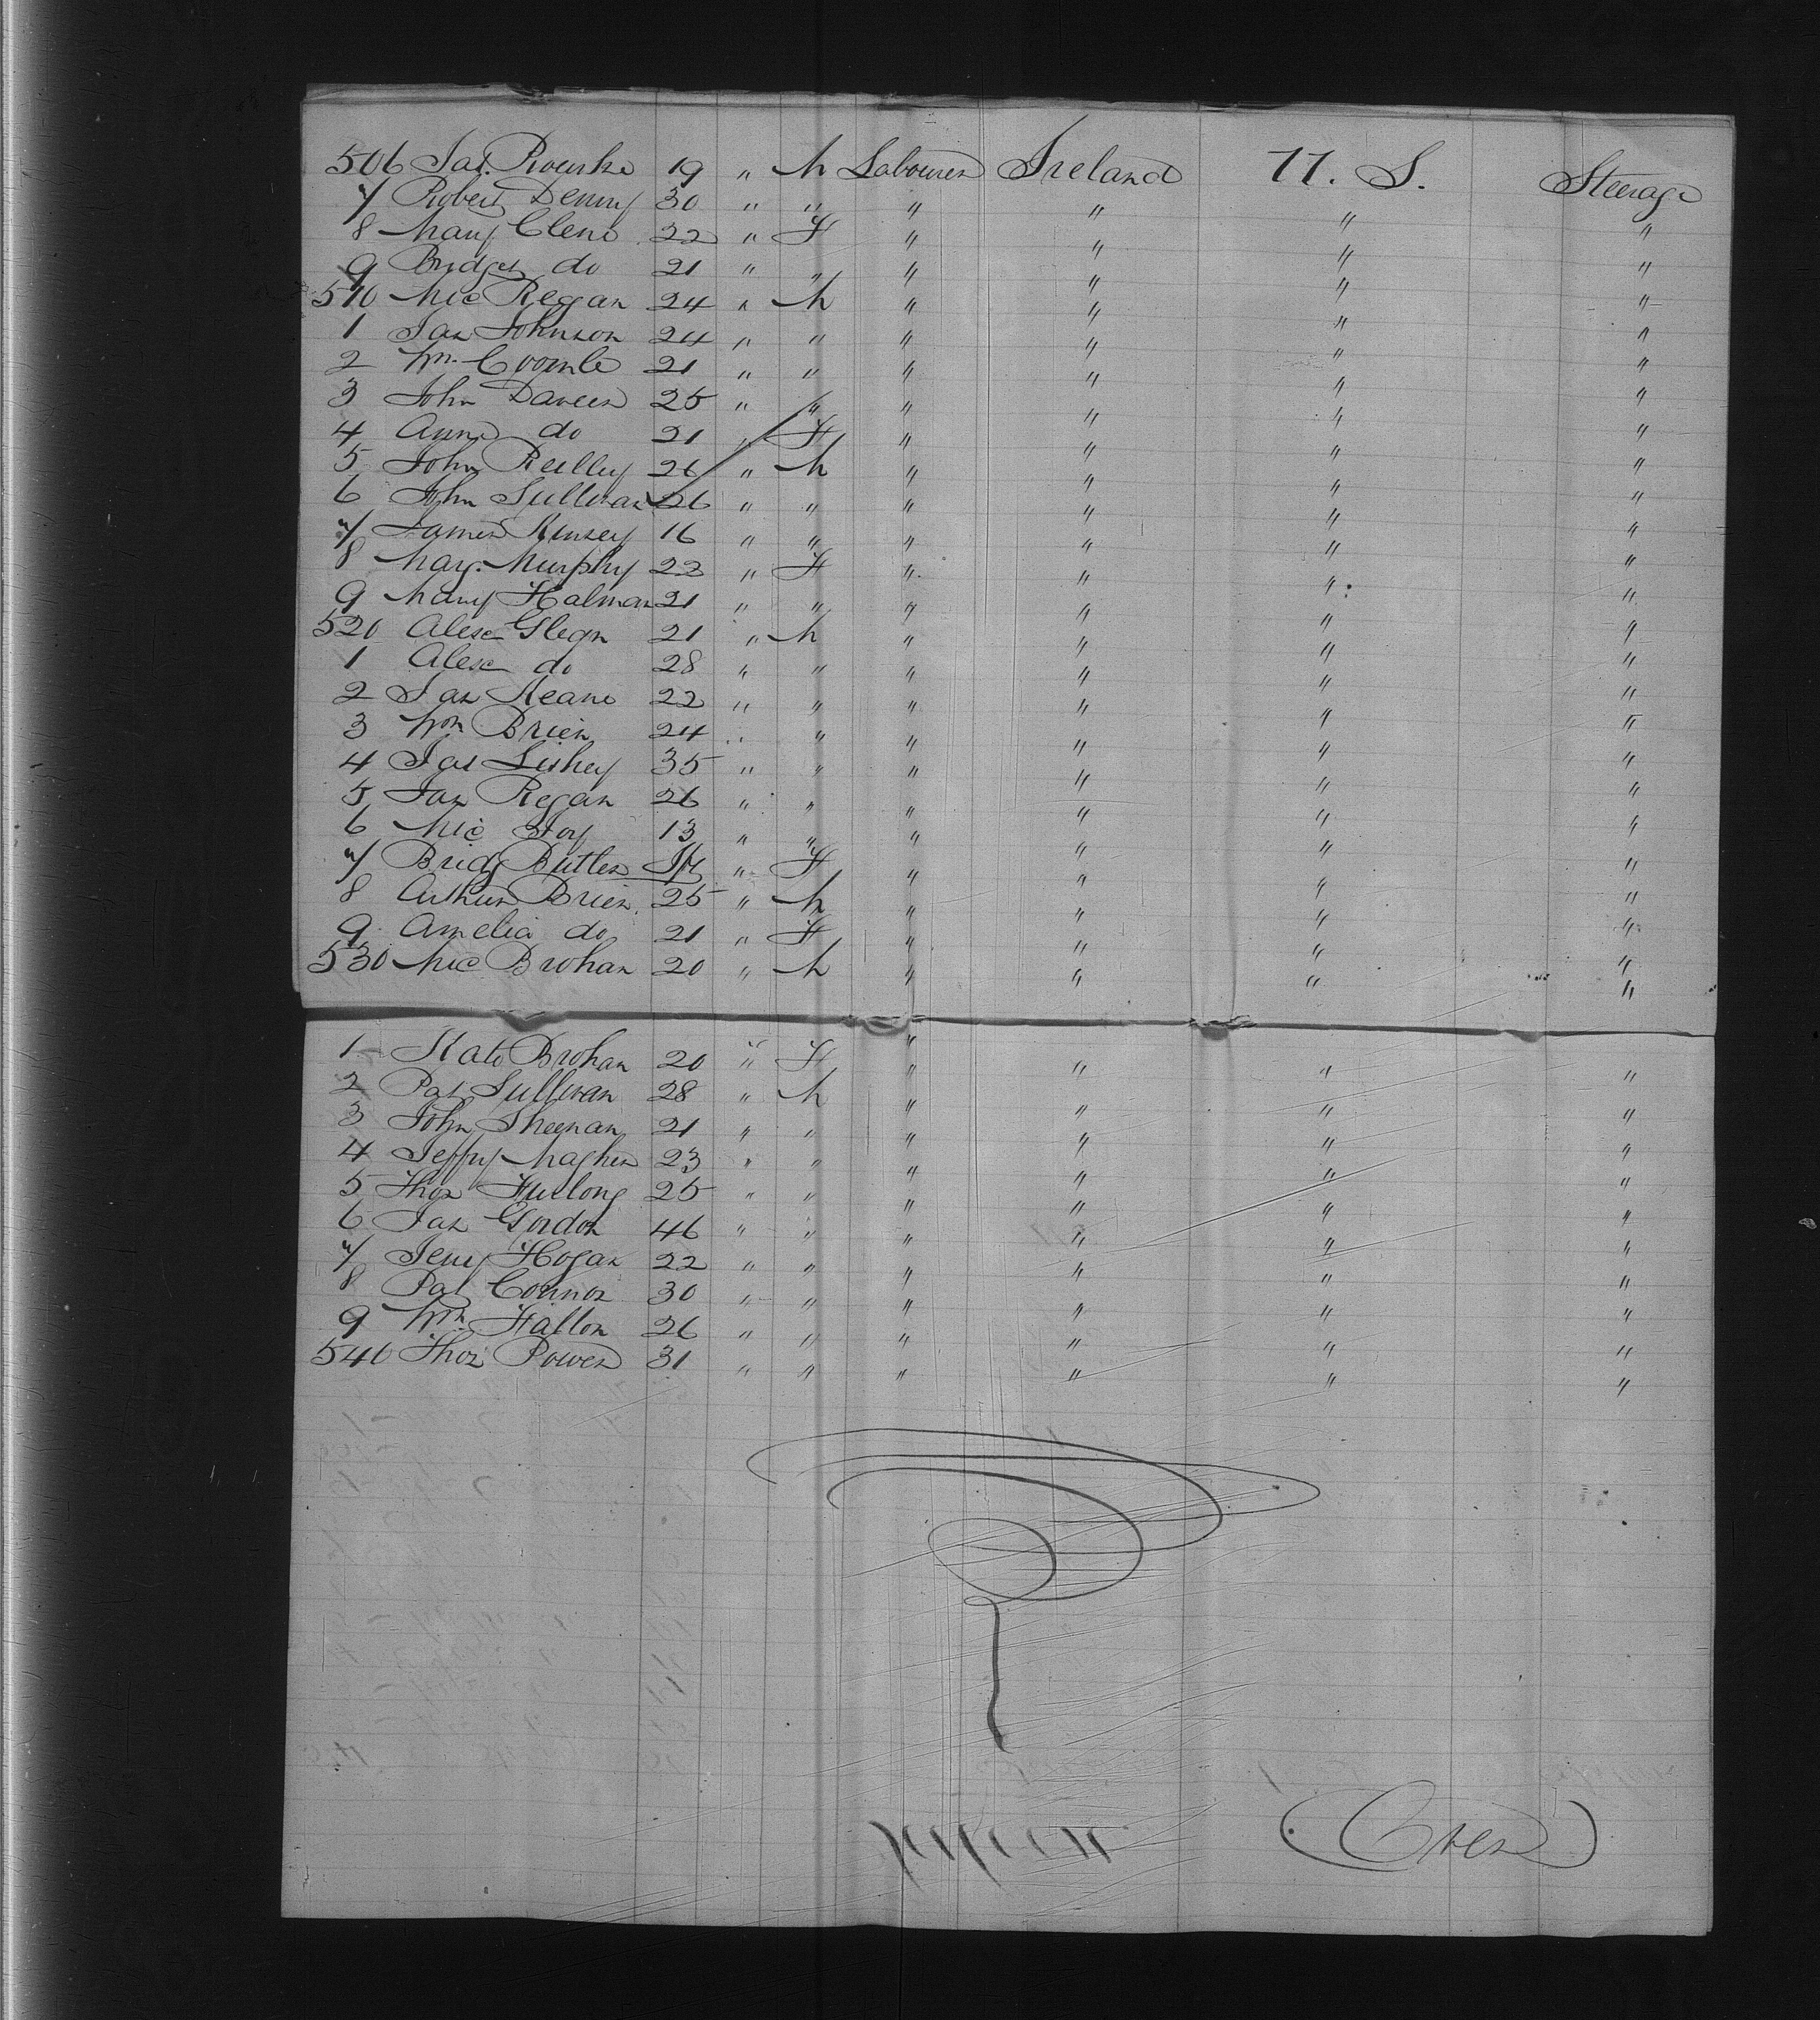 506 Jas. Rourke 19 " M Labourer Ireland U. S. Steerage
7 Robert Denny 30 " " " " " "
8 Mary Clene 22 " F " " " "
9 Bridget do 21 " " " " " "
510 Mic Regan 24 " M " " " "
1 Jas Johnson 24 " " " " " "
2 Wm. Coomle 21 " " " " " "
3 John Daveen 25 " " " " " "
4 Anne do 21 " F " " " "
5 John Reilley 26 " M " " " "
6 John Sullivan 26 " " " " " "
7 James Kinsey 16 " " " " " "
8 Mary. Murphy 22 " F " " " "
9 Mary Halman 21 " " " " " "
520 Alex Glegn 21 " M " " " "
1 Alex do 28 " " " " " "
2 Jas Keane 22 " " " " " "
3 Wm Brien 24 " " " " " "
4 Jas Lishey 35 " " " " " "
5 Jas Regan 26 " " " " " "
6 Mic Foy 13 " " " " " "
7 Bridg Butler " F " " " "
8 Arthur Brien 25 " M " " " "
9 Amelia do 21 " F " " " "
530 Mic Brohan 20 " M " " " "
1 Kate Brohan 20 " F " " " "
2 Pat Sullivan 28 " M " " " "
3 John Sheenan 21 " " " " " "
4 Jeffry Magher 23 " " " " " "
5 Thos Furlong 25 " " " " " "
6 Jas Gordon 46 " " " " " "
7 Jerry Hogan 22 " " " " " "
8 Pat Connor 30 " " " " " "
9 Wm Fallon 26 " " " " " "
540 Thos Power 31 " " " " " "
(Over)